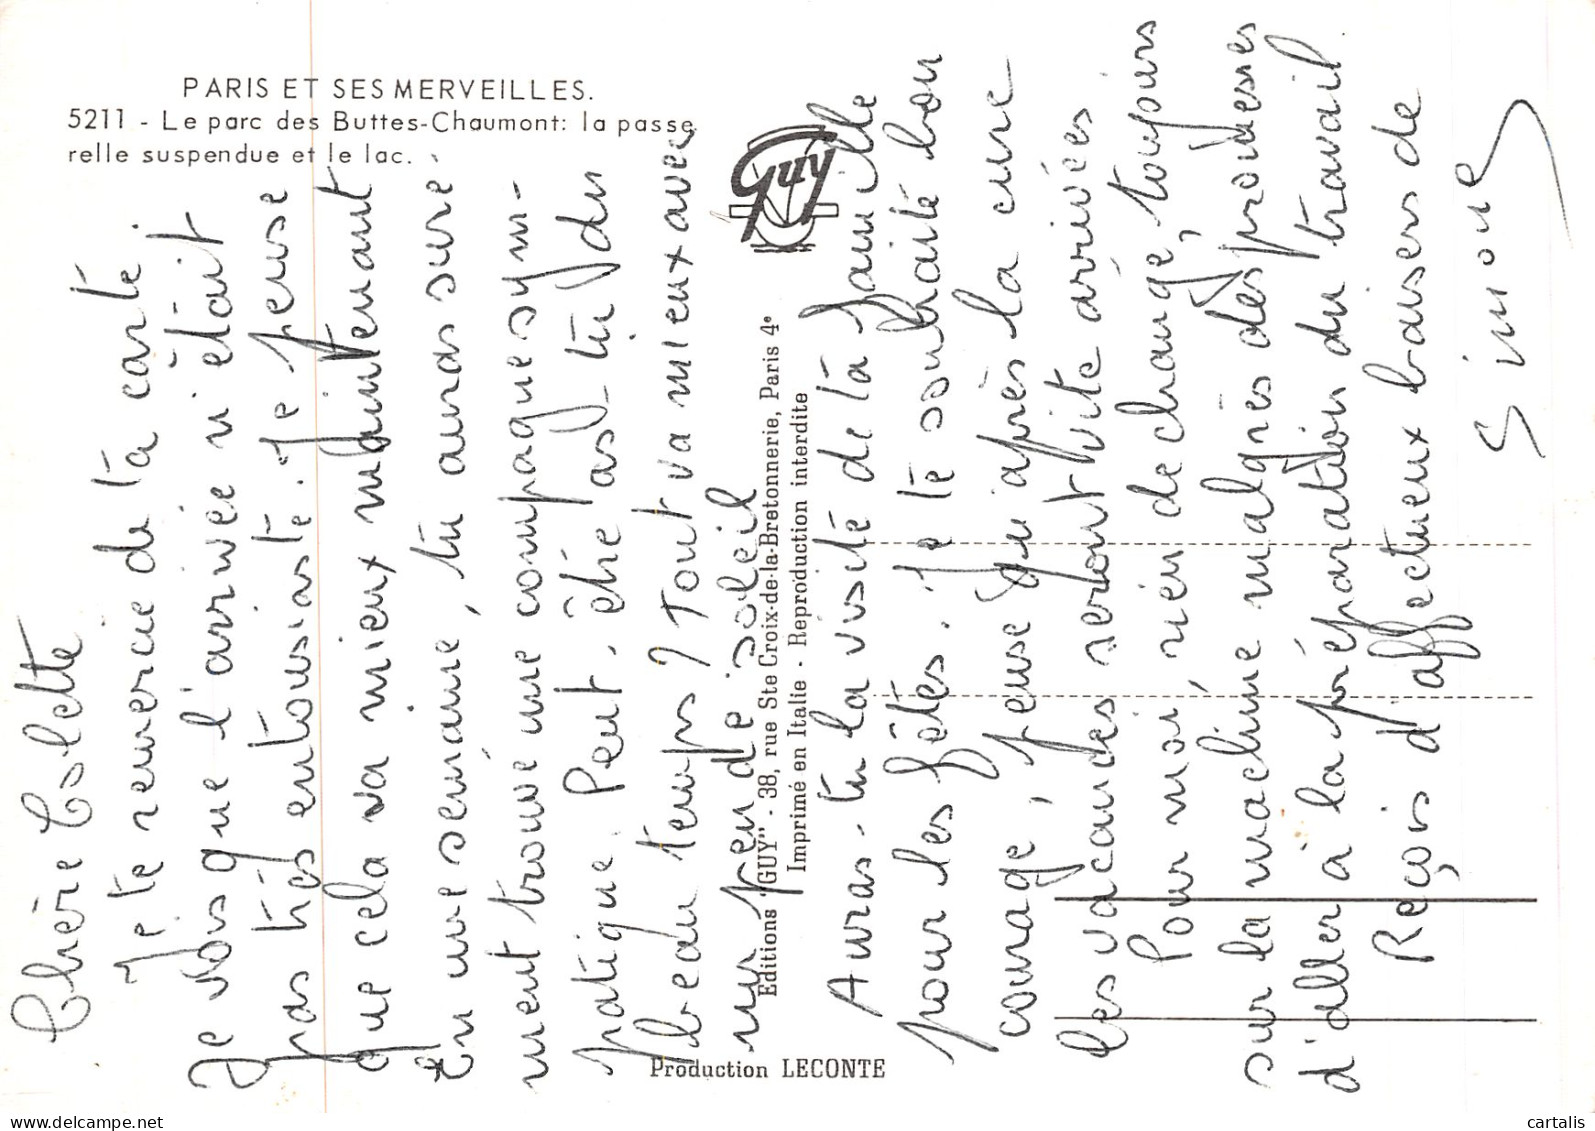 PARIS ET SES MERVEILLES.
5211 - Le parc des Buttes-Chaumont: la passe-
relle suspendue et le lac.
Guy
Editions "GUY" - 38, rue Ste Croix-de-la-Bretonnerie, Paris 4e
Imprimé en Italie - Reproduction interdite
Production LECONTE
Chère Colette
Je te remercie de ta carte.
Je vois que l'arrivée n'était
pas très entousiaste. Je pense
que cela va mieux maintenant
En une semaine, tu auras sure-
ment trouvé une compagne sym-
patique. Peut, être as-tu du
beau temps? Tout va mieux avec
un peu de soleil
Auras-tu la visite de la famille
pour les fêtes. Je te souhaite bon
courage, pense qu'après la cure
les vacances seront vite arrivées
Pour moi, rien de changé, toujours
sur la machine malgrès des prouesses
d'aller à la préparation du travail.
Reçois d'affectueux baisers de
Simone
cartalis
www.delcampe.net